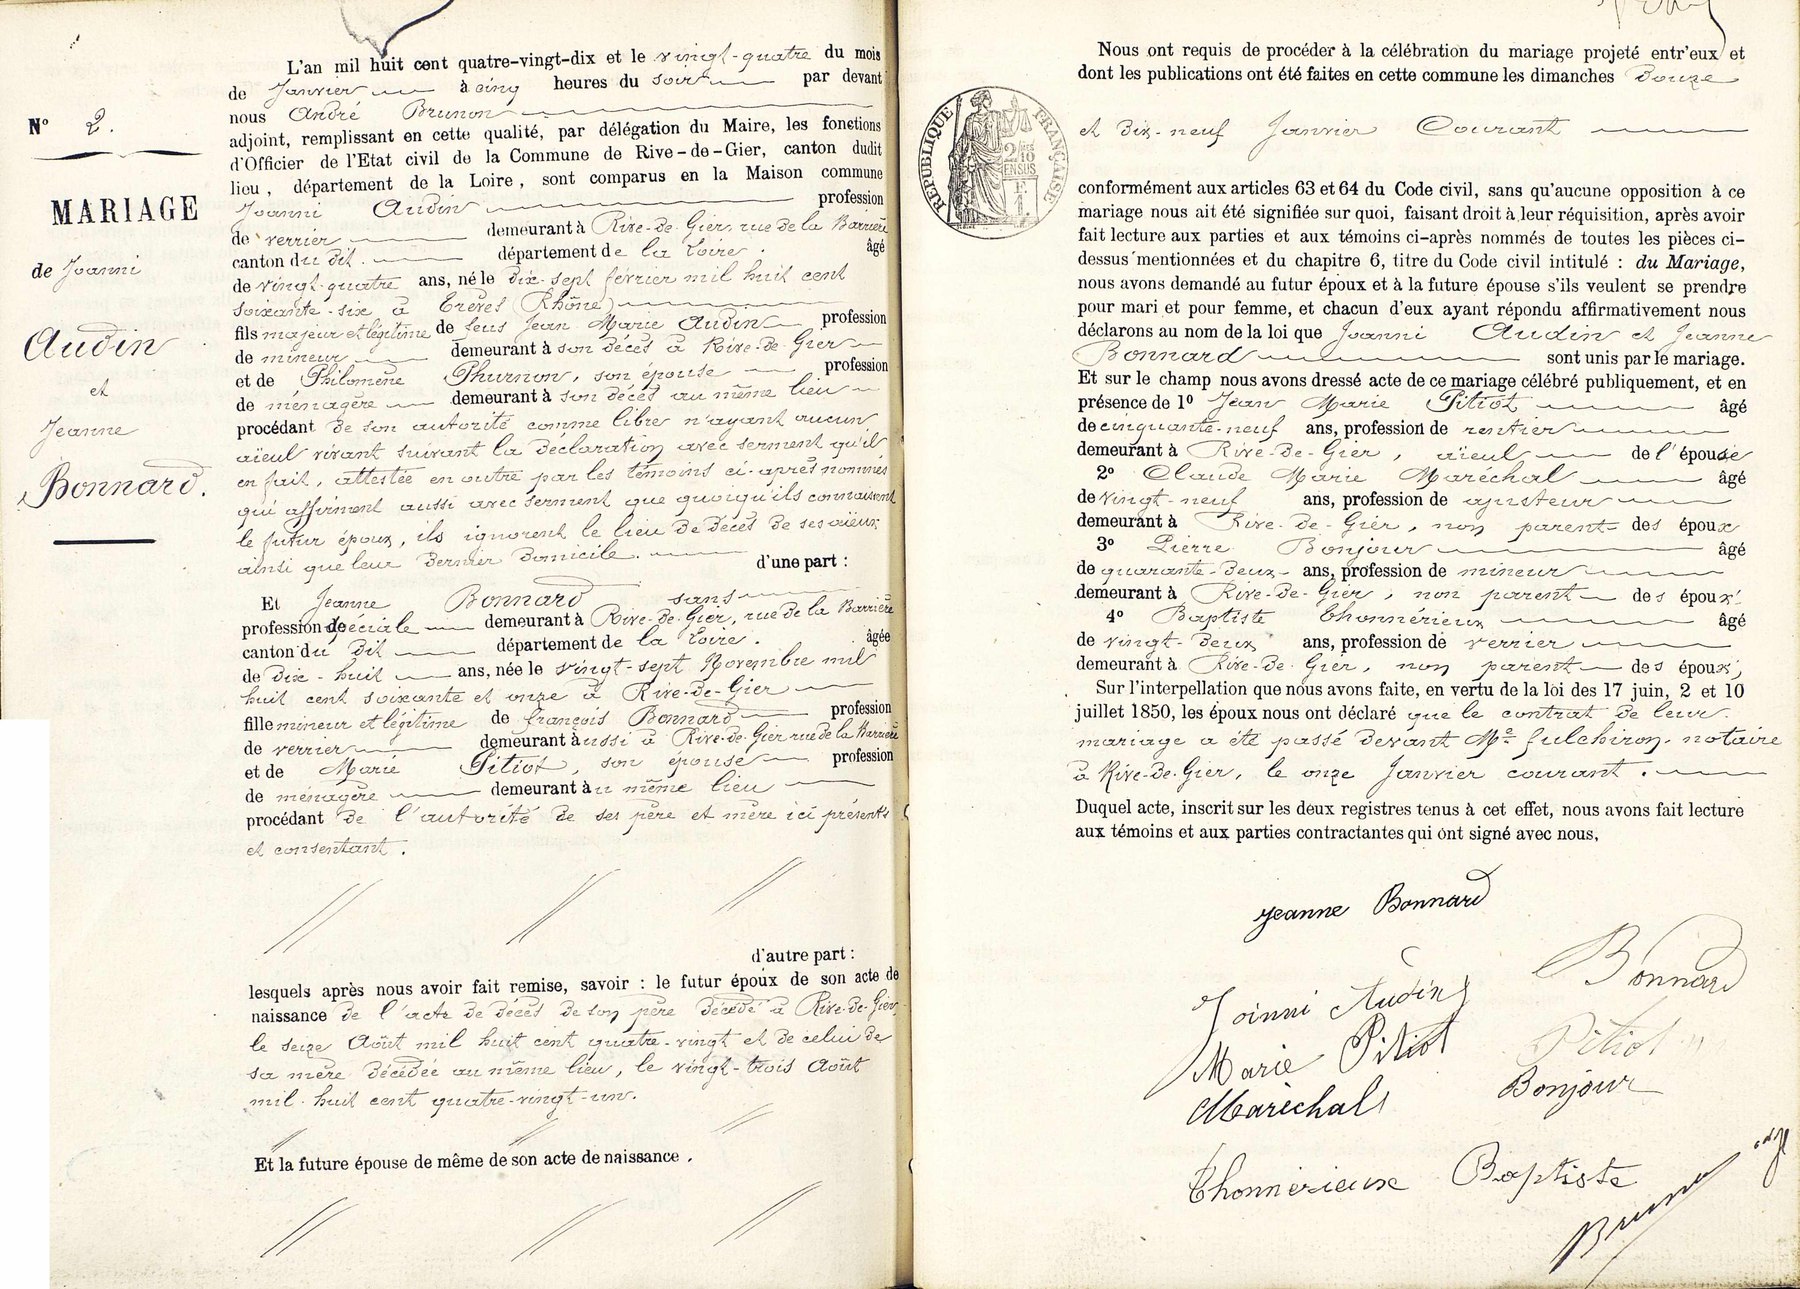 N° 2.
MARIAGE
de Joanni
Audin
et
Jeanne
Bonnard.
L'an mil huit cent quatre-vingt-dix et le vingt-quatre du mois
de Janvier à cinq heures du soir par devant
nous André Brunon
adjoint, remplissant en cette qualité, par délégation du Maire, les fonctions
d'Officier de l'Etat civil de la Commune de Rive-de-Gier, canton dudit
lieu, département de la Loire, sont comparus en la Maison commune
Joanni Audin profession
de verrier demeurant à Rive-de-Gier, rue de la Barrière
canton du dit département de la Loire. âgé
de vingt-quatre ans, né le dix-sept février mil huit cent
soixante-six à Trèves (Rhône)
fils majeur et légitime de feus Jean Marie Audin profession
de mineur demeurant à son décès à Rive-de-Gier
et de Philomène Phurnon, son épouse profession
de ménagère demeurant à son décès au même lieu
procédant de son autorité comme libre n'ayant aucun
aïeul vivant suivant la déclaration avec serment qu'il
en fait, attestée en outre par les témoins ci-après nommés
qui affirment aussi avec serment que quoiqu'ils connaissent
le futur époux, ils ignorent le lieu de décès de ses aïeux
ainsi que leur dernier domicile. d'une part :
Et Jeanne Bonnard sans
profession de spéciale demeurant à Rive-de-Gier, rue de la Barrière
canton du dit département de la Loire. âgée
de dix-huit ans, née le vingt-sept Novembre mil
huit cent soixante et onze à Rive-de-Gier
fille mineur et légitime de françois Bonnard profession
de verrier demeurant à aussi à Rive-de-Gier rue de la Barrière
et de Marie Pitiot, son épouse profession
de ménagère demeurant au même lieu
procédant de l'autorité de ses père et mère ici présents
et consentant.
d'autre part :
lesquels après nous avoir fait remise, savoir : le futur époux de son acte de
naissance de l'acte de décès de son père décédé à Rive-de-Gier
le seize Août mil huit cent quatre-vingt et de celui de
sa mère décédée au même lieu, le vingt-trois Août
mil-huit cent quatre-vingt-un.
Et la future épouse de même de son acte de naissance.
Nous ont requis de procéder à la célébration du mariage projeté entr'eux et
dont les publications ont été faites en cette commune les dimanches douze
RÉPUBLIQUE FRANÇAISE
2/10
EN SUS
et dix-neuf Janvier Courant
conformément aux articles 63 et 64 du Code civil, sans qu'aucune opposition à ce
mariage nous ait été signifiée sur quoi, faisant droit à leur réquisition, après avoir
fait lecture aux parties et aux témoins ci-après nommés de toutes les pièces ci-
dessus mentionnées et du chapitre 6, titre du Code civil intitulé : du Mariage,
nous avons demandé au futur époux et à la future épouse s'ils veulent se prendre
pour mari et pour femme, et chacun d'eux ayant répondu affirmativement nous
déclarons au nom de la loi que Joanni Audin et Jeanne
Bonnard sont unis par le mariage.
Et sur le champ nous avons dressé acte de ce mariage célébré publiquement, et en
présence de 1° Jean Marie Pitiot âgé
de cinquante-neuf ans, profession de rentier
demeurant à Rive-de-Gier, aïeul de l'épouse
2° Claude Marie Maréchal âgé
de vingt-neuf ans, profession de ajusteur
demeurant à Rive-de-Gier, non parent des époux
3° Pierre Bonjour âgé
de quarante-deux ans, profession de mineur
demeurant à Rive-de-Gier, non parent des époux
4° Baptiste Thonnérieux âgé
de vingt-deux ans, profession de verrier
demeurant à Rive-de-Gier, non parent des époux,
Sur l'interpellation que nous avons faite, en vertu de la loi des 17 juin, 2 et 10
juillet 1850, les époux nous ont déclaré que le contrat de leur
mariage a été passé devant Me fulchiron, notaire
à Rive-de-Gier, le onze Janvier courant.
Duquel acte, inscrit sur les deux registres tenus à cet effet, nous avons fait lecture
aux témoins et aux parties contractantes qui ont signé avec nous,
Jeanne Bonnard
Bonnard
Joinni Audin
Marie Pitiot
Pitiot
Maréchal
Bonjour
Thonnerieux Baptiste
Brunon